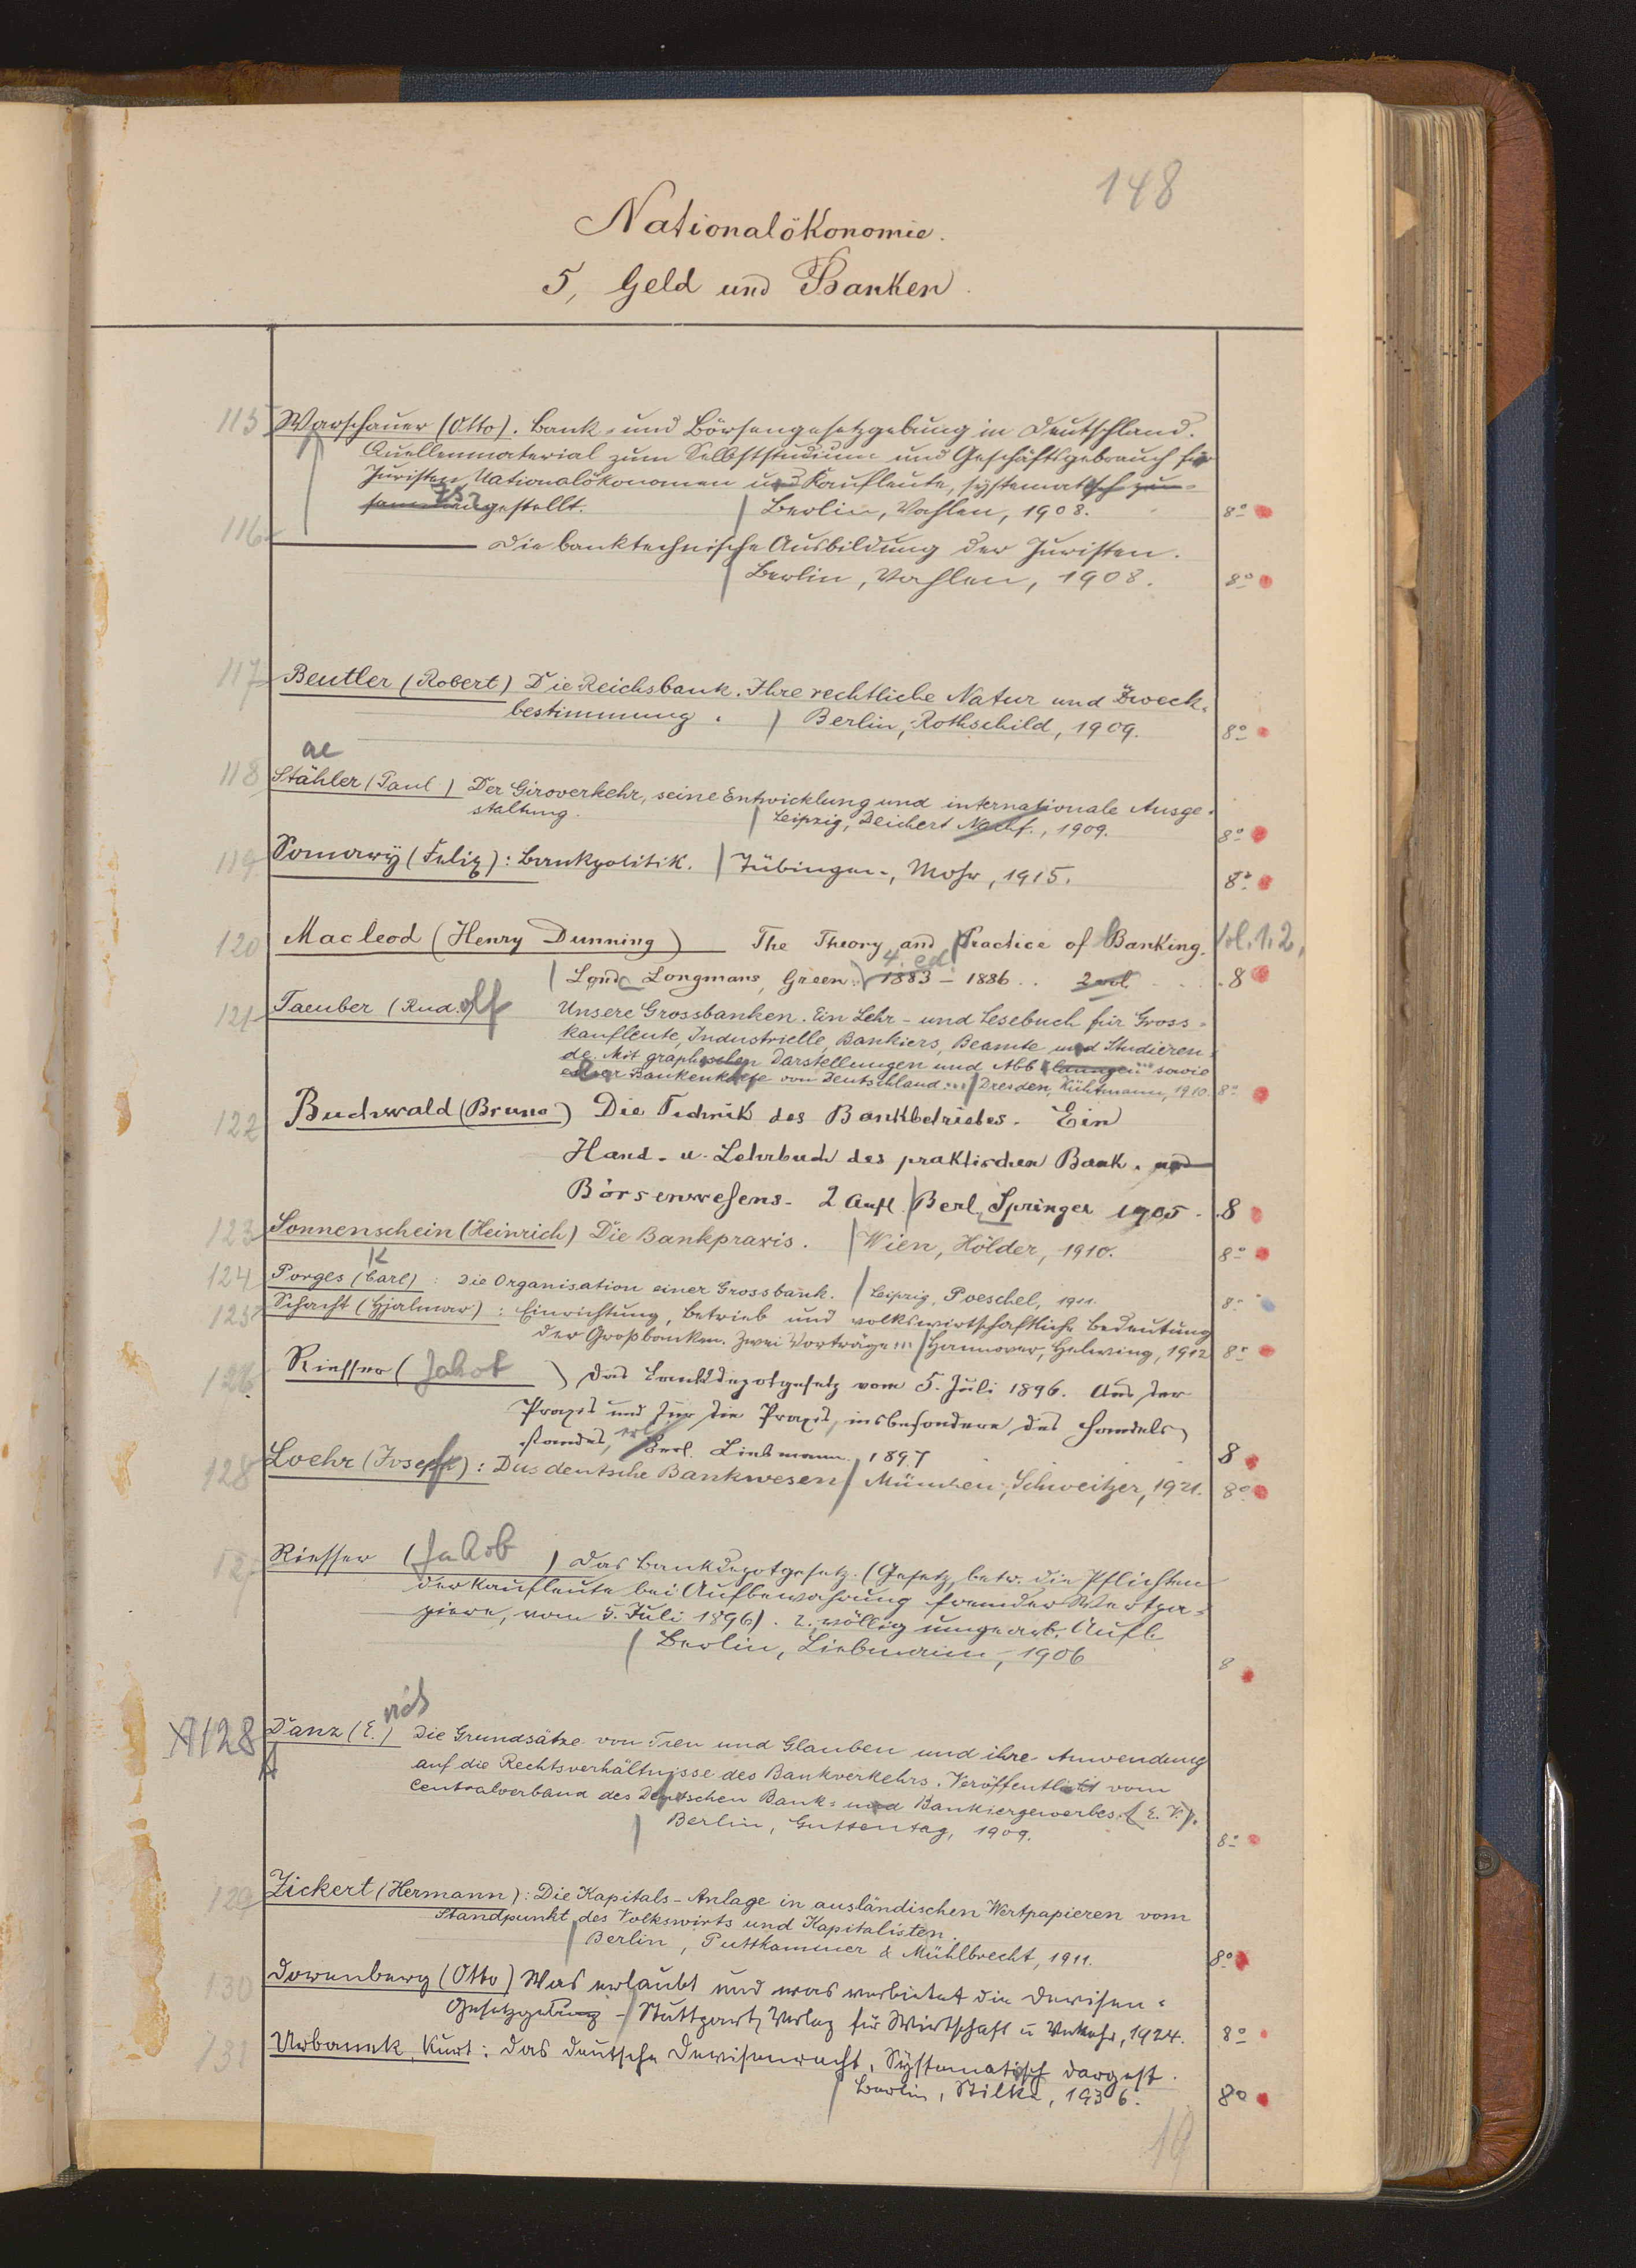 148
Nationalökonomie.
5, Geld und Banken.
115 Warschauer (Otto). Bank- und Börsengesetzgebung in Deutschland.
Quellenmaterial zum Selbststudium und Geschäftsgebrauch für
Juristen, Nationalökonomen und Kaufleute, systematisch zu-
sammengestellt. Berlin, Vahlen, 1908. 8°
116 ——— Die banktechnische Ausbildung der Juristen.
Berlin, Vahlen, 1908. 8°
117 Beutler (Robert) Die Reichsbank. Ihre rechtliche Natur und Zweck-
bestimmung. Berlin, Rothschild, 1909. 8°
ae
118 Stähler (Paul) Der Giroverkehr, seine Entwicklung und internationale Ausge-
staltung. Leipzig, Deichert Nachf., 1909. 8°
119 Somary (Felix): Bankpolitik. Tübingen, Mohr, 1915. 8°
120 Macleod (Henry Dunning) The Theory and Practice of Banking. Vol. 1.2,
4. ed.
Lond. Longmans, Green. 1883 – 1886 .. 2 vol. 8
121 Taeuber (Rudolf) Unsere Grossbanken. Ein Lehr- und Lesebuch für Gross-
kaufleute, Industrielle, Bankiers, Beamte und Studieren-
de. Mit graphischen Darstellungen und Abbildungen sowie
einer Bankenkarte von Deutschland... Dresden, Kühtmann, 1910. 8°
122 Buchwald (Bruno) Die Technik des Bankbetriebes. Ein
Hand- u. Lehrbuch des praktischen Bank- und
Börsenwesens. 2 Aufl. Berl. Springer 1905. 8
123 Sonnenschein (Heinrich) Die Bankpraxis. Wien, Hölder, 1910. 8°
K
124 Porges (Carl): Die Organisation einer Grossbank. Leipzig, Poeschel, 1911. 8°
125 Schacht (Hjalmar): Einrichtung, Betrieb und volkswirtschaftliche Bedeutung
der Großbanken. Zwei Vorträge... Hannover, Helwing, 1912 8°
126 Riesser (Jakob) Das Bankdepotgesetz vom 5. Juli 1896. Aus der
Praxis und für die Praxis, insbesondere des Handels-
standes, erl. Berl. Liebmann. 1897 8
128 Loehr (Josef): Das deutsche Bankwesen. München, Schweitzer, 1921. 8°
127 Riesser (Jakob) Das Bankdepotgesetz. (Gesetz, betr. die Pflichten
der Kaufleute bei Aufbewahrung fremder Wertpa-
piere, vom 5. Juli 1896). 2. völlig umgearb. Aufl.
Berlin, Liebmann, 1906 8
128 Danz (E.) Die Grundsätze von Treu und Glauben und ihre Anwendung
auf die Rechtsverhältnisse des Bankverkehrs. Veröffentlicht vom
Centralverband des Deutschen Bank- und Bankiergewerbes. (E. V.).
Berlin, Guttentag, 1909. 8°
129 Zickert (Hermann): Die Kapitals-Anlage in ausländischen Wertpapieren vom
Standpunkt des Volkswirts und Kapitalisten.
Berlin, Puttkammer & Mühlbrecht, 1911. 8°
130 Dorenberg (Otto) Was erlaubt und was verbietet die Devisen-
Gesetzgebung – Stuttgart, Verlag für Wirtschaft u Verkehr, 1924. 8°
131 Urbanek, Kurt: Das deutsche Devisenrecht. Systematisch dargest.
Berlin, Stilke, 1936. 8°
19